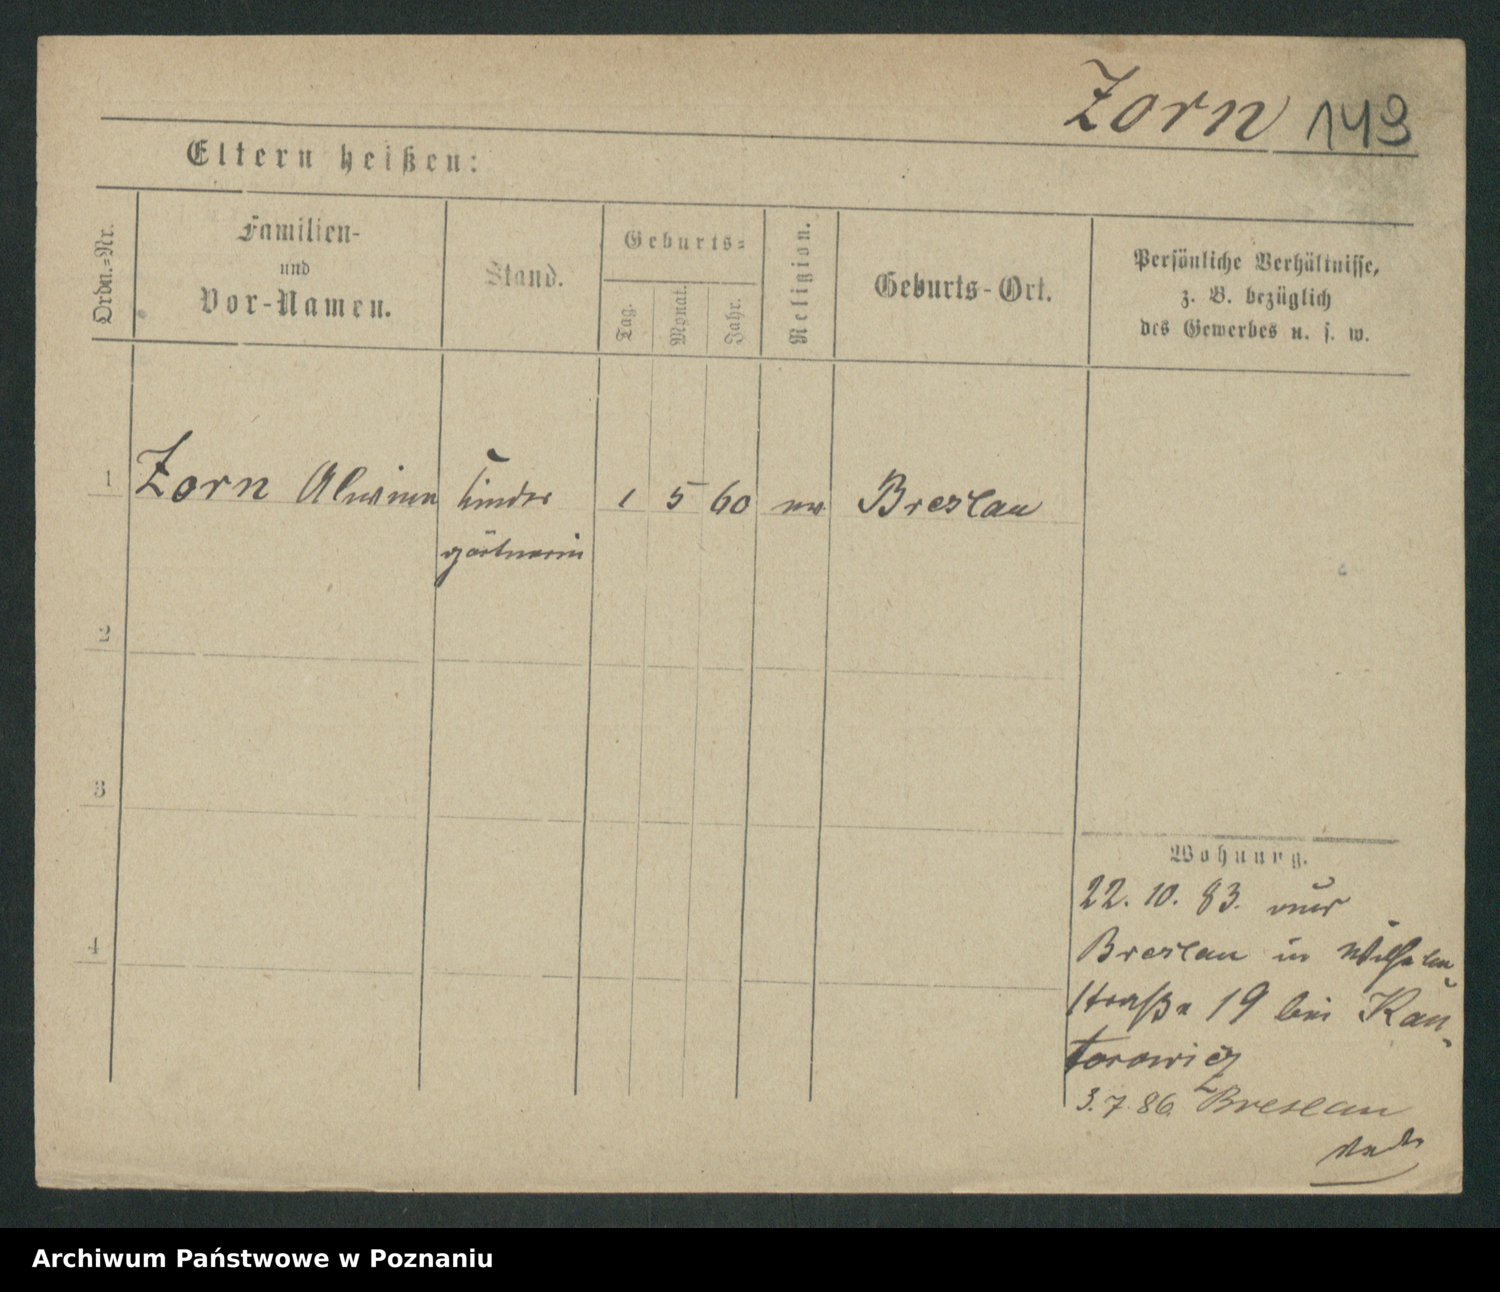 Zorn 149
Eltern heißen:
Ordn.=Nr.
Familien-
und
Vor-Namen.
Stand.
Geburts=
Tag.
Monat.
Jahr.
Religion.
Geburts-Ort.
Persönliche Verhältnisse,
z. B. bezüglich
des Gewerbes u. s. w.
1 Zorn Alwinen Kinder 1 5 60 Breslau
gärtnerin
2
3
4
Wohnung.
22. 10. 83. aus
Breslau in Wilhelm
straße 19 bei Kan
torowicz
3. 7. 86 Breslau